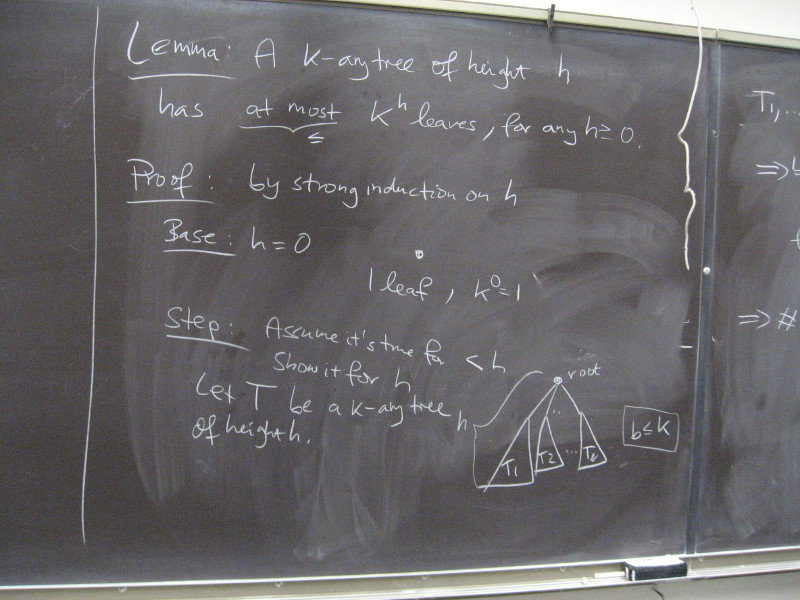 Lemma: A k-ary tree of height h
has at most k^h leaves, for any h≥0.
≤
Proof: by strong induction on h
Base: h=0
1 leaf, k^0=1
Step: Assume it's true for <h
Show it for h
Let T be a k-ary tree
of height h.
root
h
T1 T2 ...
b≤k
T1,...
⇒
⇒ #